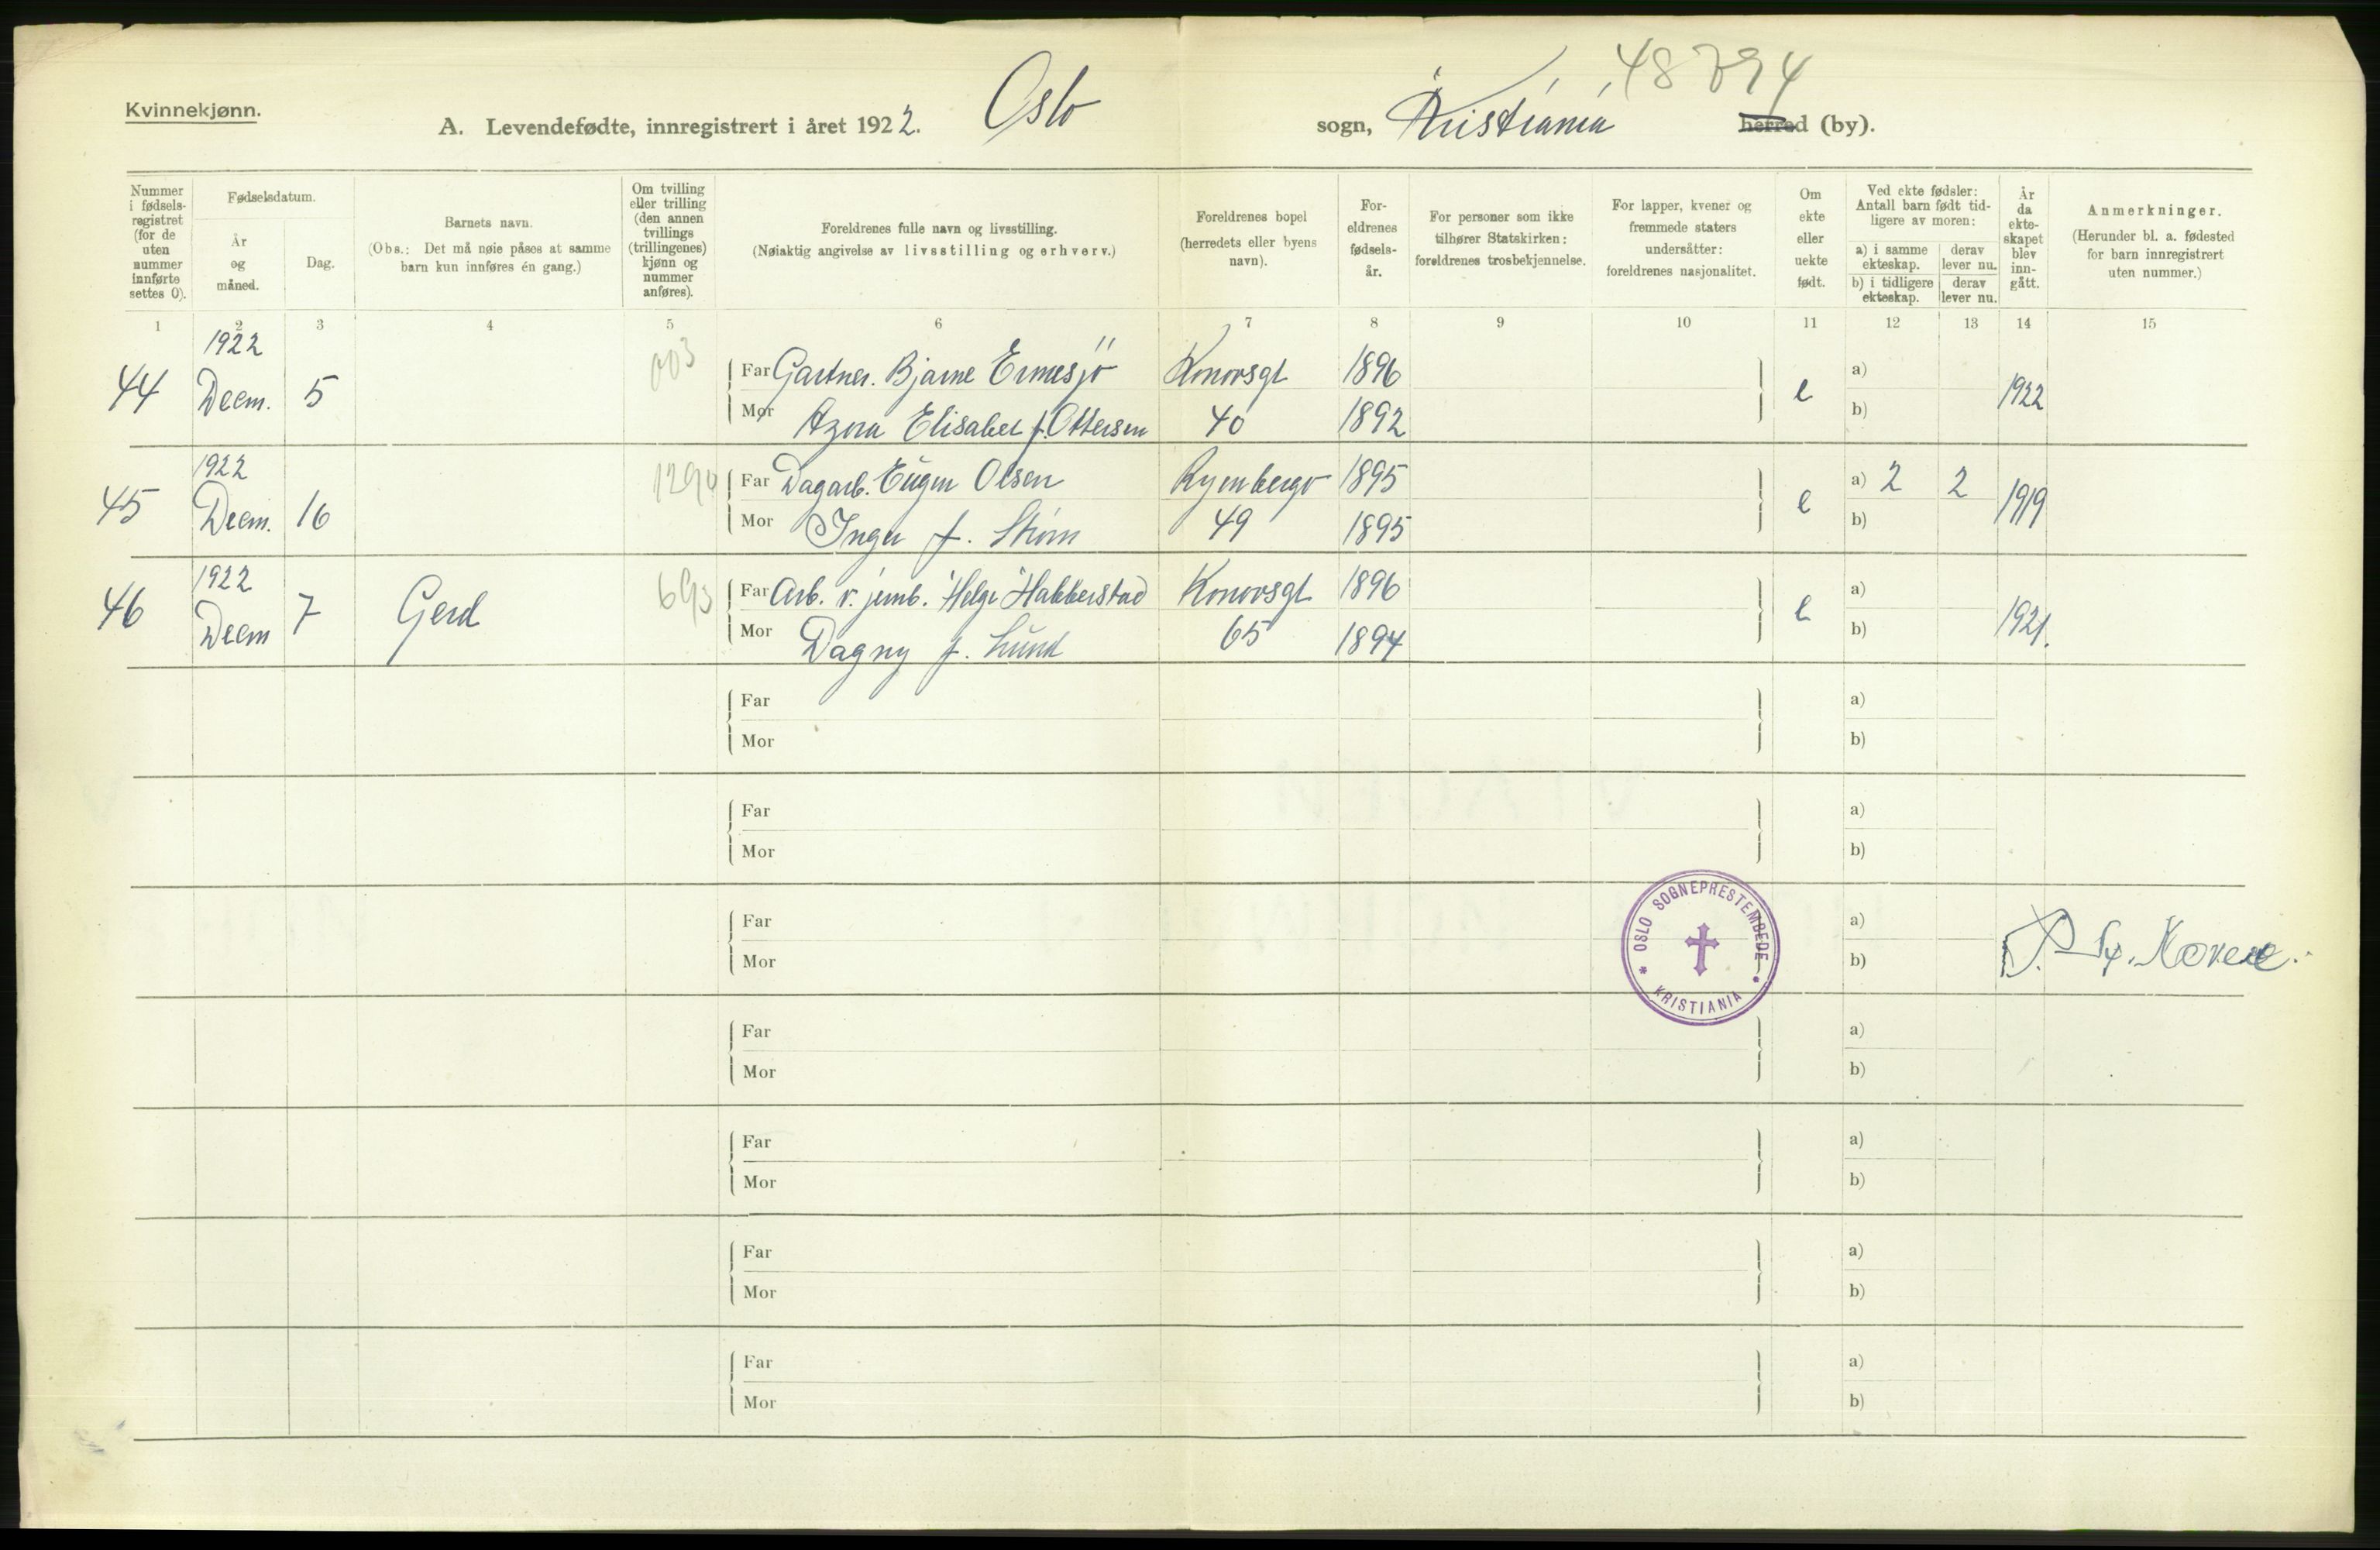 Kvinnekjønn.
48794
A. Levendefødte, innregistrert i året 1922. Oslo sogn, Kristiania herred (by).
Nummer i fødsels-registret (for de uten nummer innførte settes 0).
Fødselsdatum.
År og måned.
Dag.
Barnets navn.
(Obs.: Det må nøie påses at samme barn kun innføres én gang.)
Om tvilling eller trilling (den annen tvillings (trillingenes) kjønn og nummer anføres).
Foreldrenes fulle navn og livsstilling.
(Nøiaktig angivelse av livsstilling og erhverv.)
Foreldrenes bopel (herredets eller byens navn).
For-eldrenes fødsels-år.
For personer som ikke tilhører Statskirken: foreldrenes trosbekjennelse.
For lapper, kvener og fremmede staters undersåtter: foreldrenes nasjonalitet.
Om ekte eller uekte født.
Ved ekte fødsler: Antall barn født tid-ligere av moren:
a) i samme ekteskap.
derav lever nu.
b) i tidligere ekteskap.
derav lever nu.
År da ekte-skapet blev inn-gått.
Anmerkninger.
(Herunder bl. a. fødested for barn innregistrert uten nummer.)
1 2 3 4 5 6 7 8 9 10 11 12 13 14 15
44 1922 Decm. 5 003 Far Gartner. Bjarne Ermesjö Konovsgt 1896 e a) 1922
Mor Azora Elisabet f. Ottersen 40 1892 b)
45 1922 Decm. 16 1290 Far Dagarb. Eugen Olsen Ryenbergv 1895 e a) 2 2 1919
Mor Inger f. Strøm 49 1895 b)
46 1922 Decm 7 Gerd 693 Far Arb. v. jernb. Helge Hakkerstad Konovsgt 1896 e a) 1921.
Mor Dagny f. Lund 65 1894 b)
Far a)
Mor b)
Far a)
Mor b)
Far a)
Mor b)
OSLO SOGNEPRESTEMBEDE
KRISTIANIA
Far a)
Mor b)
Far a)
Mor b)
Far a)
Mor b)
Far a)
Mor b)